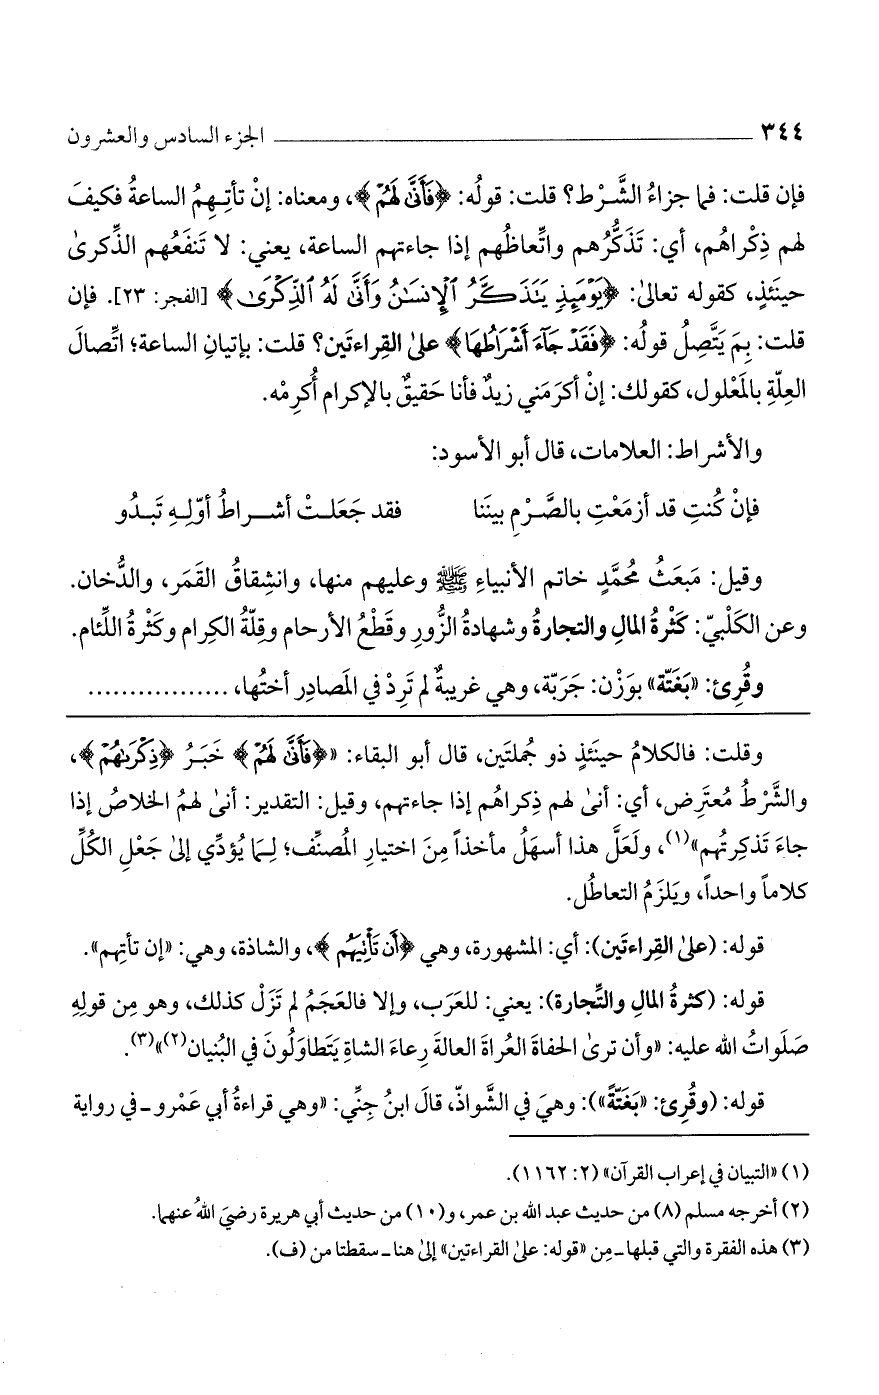 ٣٤٤ ــــــــــــــــــــ الجزء السادس والعشرون
فإن قلت: فما جزاءُ الشَّرْط؟ قلت: قولُه: ﴿فَأَنَّىٰ لَهُمْ﴾، ومعناه: إنْ تأتـِهِمُ الساعةُ فكيفَ
لهم ذِكْراهُم، أي: تَذَكُّرُهم واتِّعاظُهم إذا جاءتهم الساعة، يعني: لا تَنفَعُهم الذِّكرىٰ
حينَئذٍ، كقوله تعالىٰ: ﴿يَوْمَئِذٍ يَتَذَكَّرُ ٱلْإِنسَٰنُ وَأَنَّىٰ لَهُ ٱلذِّكْرَىٰ﴾ [الفجر: ٢٣]. فإن
قلت: بِمَ يَتَّصِلُ قولُه: ﴿فَقَدْ جَآءَ أَشْرَاطُهَا﴾ علىٰ القِراءتَين؟ قلت: بإتيانِ الساعة؛ اتِّصالَ
العِلّةِ بالمَعْلول، كقولك: إنْ أكرَمَني زيدٌ فأنا حَقيقٌ بالإكرام أُكرِمْه.
والأشراط: العلامات، قال أبو الأسود:
فإنْ كُنتِ قد أزمَعْتِ بالصَّرْمِ بينَنا فقد جَعَلـتْ أشـراطُ أوّلِـهِ تَبـدُو
وقيل: مَبعَثُ مُحمَّدٍ خاتم الأنبياءِ ﷺ وعليهم منها، وانشِقاقُ القَمَر، والدُّخان.
وعن الكَلْبيّ: كَثْرةُ المالِ والتجارةُ وشهادةُ الزُّورِ وقَطْعُ الأرحام وقِلّةُ الكِرام وكَثْرةُ اللِّئام.
وقُرِئ: «بَغَتّة» بوَزْن: جَرَبّة، وهي غريبةٌ لم تَرِدْ في المَصادِر أختُها، .................
وقلت: فالكلامُ حينَئذٍ ذو جُملتَين، قال أبو البقاء: «﴿فَأَنَّىٰ لَهُمْ﴾ خَبَرُ ﴿ذِكْرَىٰهُمْ﴾،
والشَّرْطُ مُعتَرِض، أي: أنىٰ لهم ذِكراهُم إذا جاءتهم، وقيل: التقدير: أنىٰ لهمُ الخلاصُ إذا
جاءَ تَذكِرتُهم»(١)، ولَعَلَّ هذا أسهَلُ مأخذاً مِنَ اختيارِ المُصنِّف؛ لِـمَا يُؤدِّي إلىٰ جَعْلِ الكُلِّ
كلاماً واحداً، ويَلزَمُ التعاطُل.
قوله: (علىٰ القِراءتَين): أي: المشهورة، وهي ﴿أَن تَأْتِيَهُم﴾، والشاذة، وهي: «إن تأتِهم».
قوله: (كثرةُ المالِ والتِّجارة): يعني: للعَرَب، وإلا فالعَجَمُ لم تَزَلْ كذلك، وهو مِن قولِهِ
صَلَواتُ الله عليه: «وأن ترىٰ الحفاةَ العُراةَ العالةَ رِعاءَ الشاةِ يَتَطاوَلُونَ في البُنيان(٢)»(٣).
قوله: (وقُرِئ: «بَغَتّةً»): وهيَ في الشَّواذّ، قالَ ابنُ جِنِّي: «وهي قراءةُ أبي عَمْرو ـ في رواية
(١) «التبيان في إعراب القرآن» (٢: ١١٦٢).
(٢) أخرجه مسلم (٨) من حديث عبد الله بن عمر، و(١٠) من حديث أبي هريرة رضيَ اللهُ عنهما.
(٣) هذه الفقرة والتي قبلها ـ مِن «قوله: علىٰ القراءتين» إلىٰ هنا ـ سقطتا من (ف).